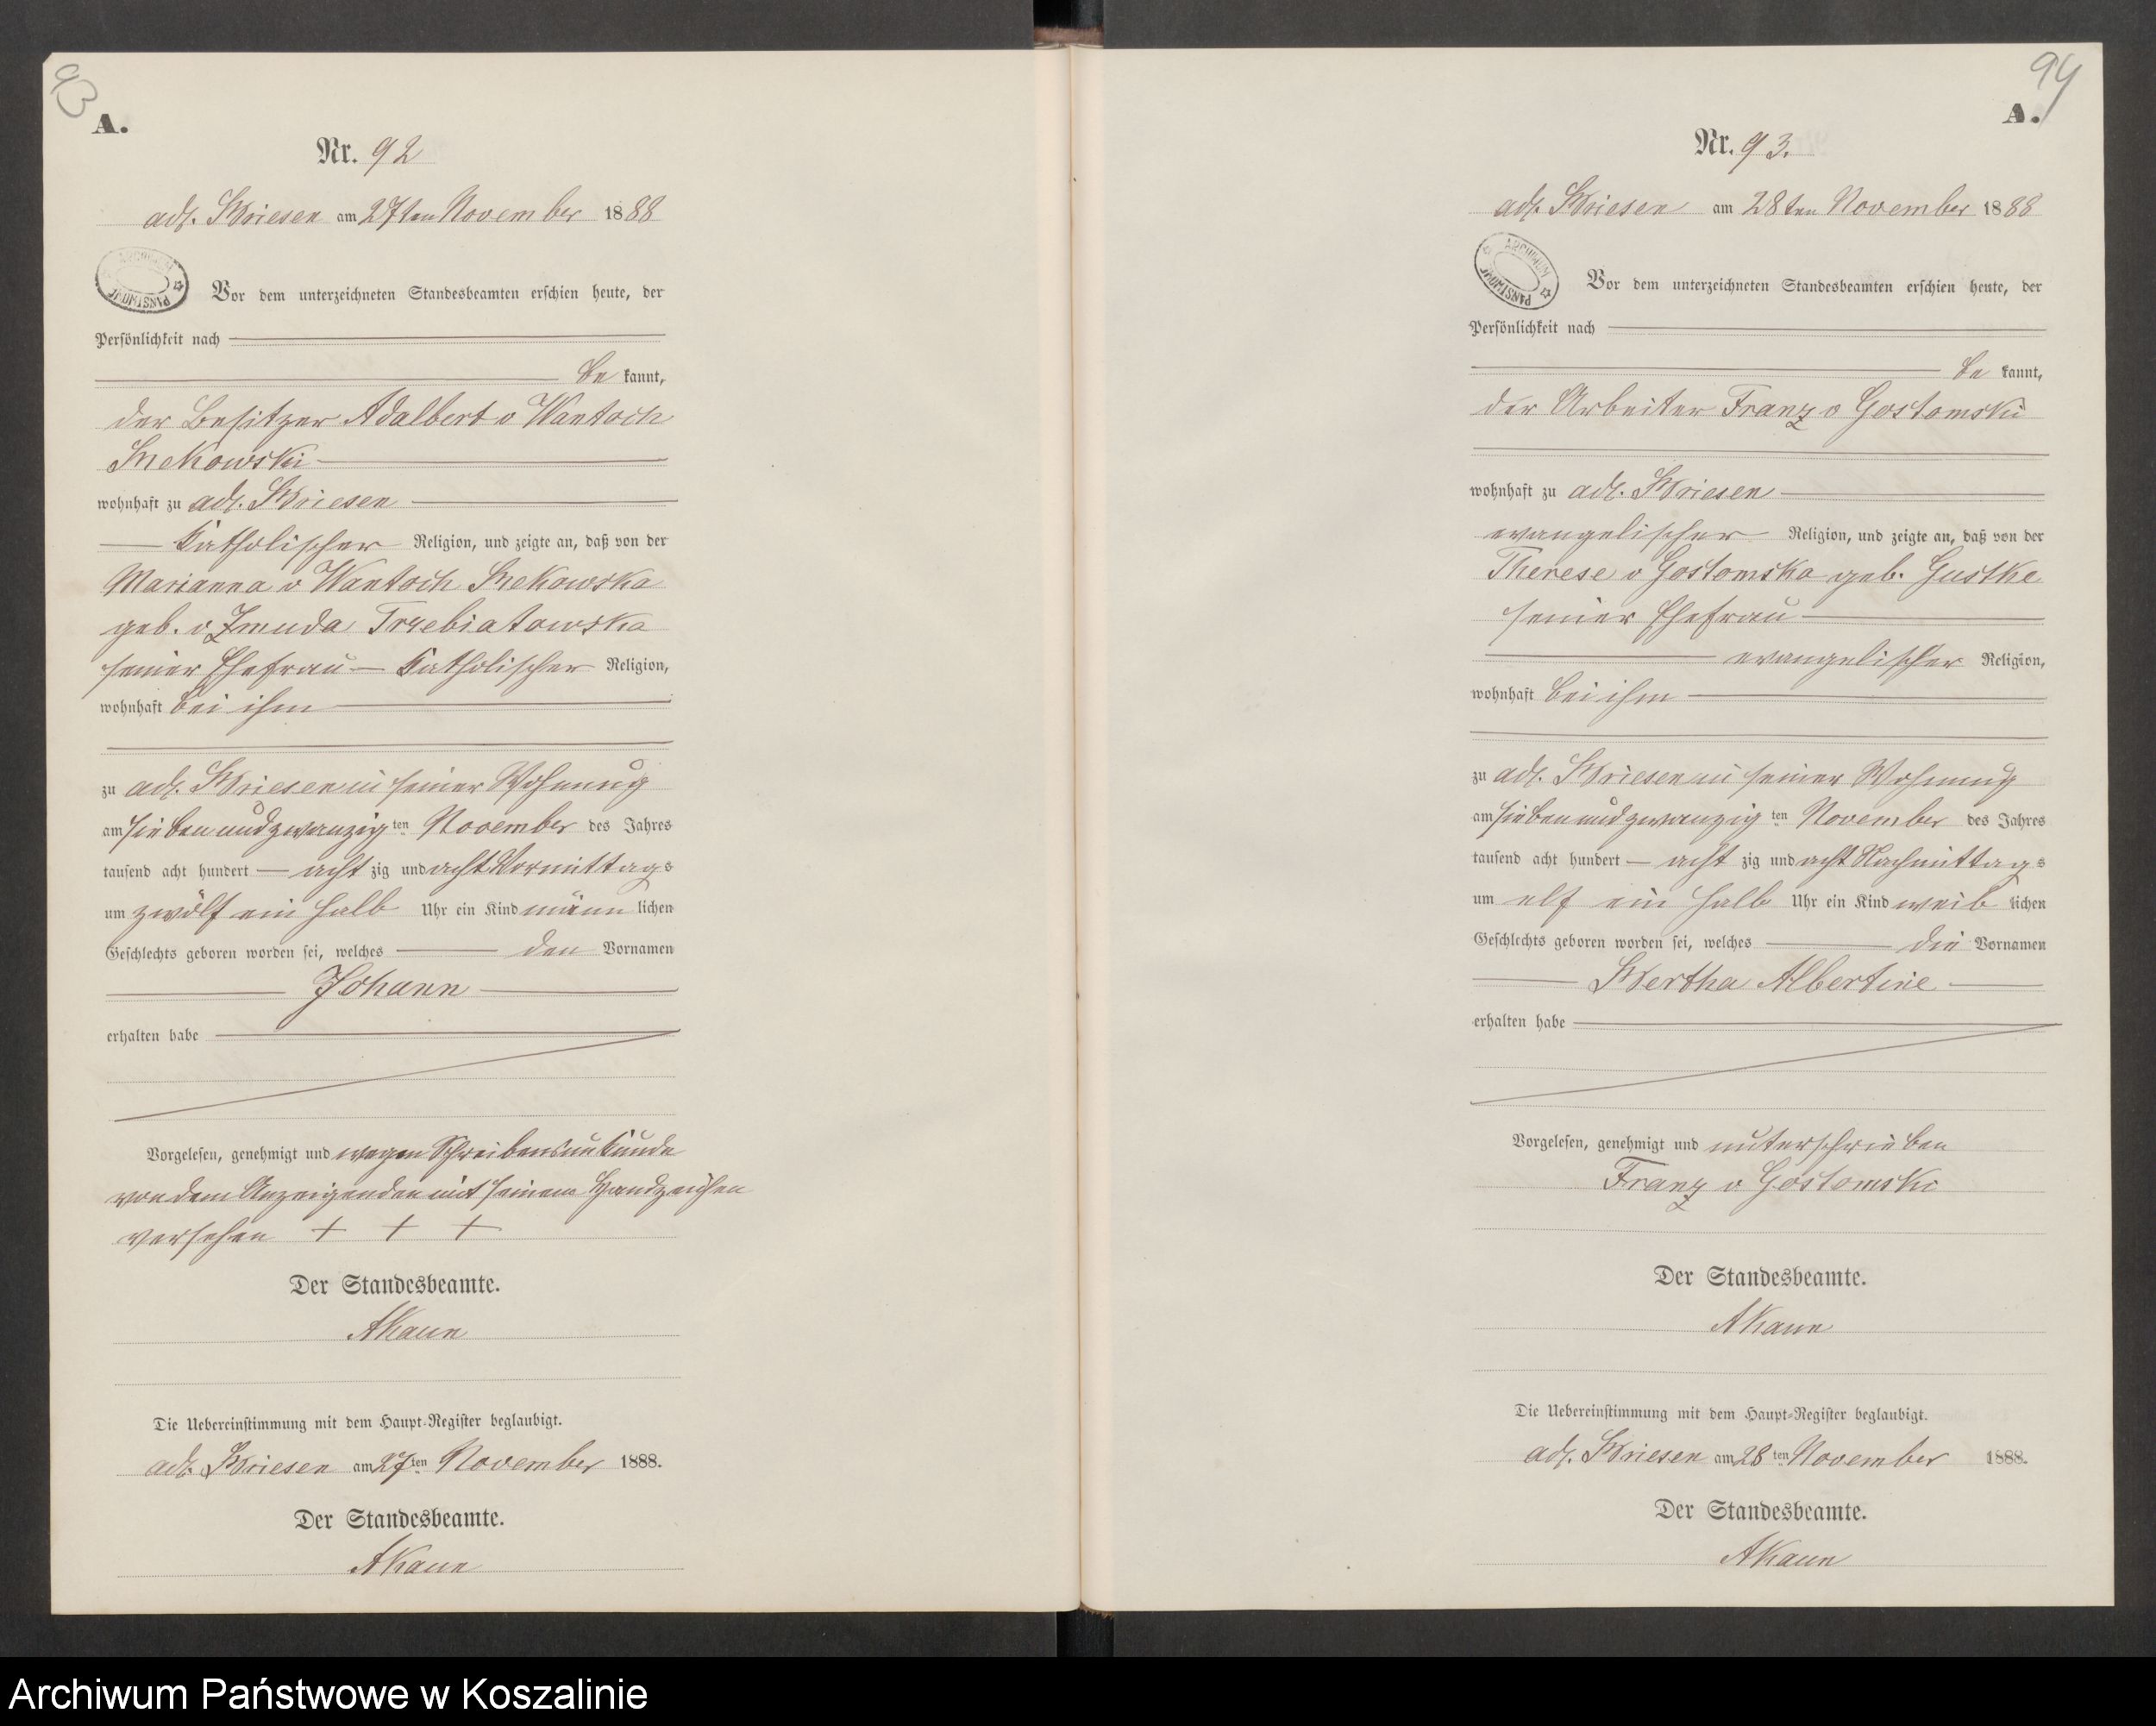 93
A.
Nr. 92
adl. Briesen am 27ten November 1888
ARCHIWUM PAŃSTWOWE
Vor dem unterzeichneten Standesbeamten erschien heute, der
Persönlichkeit nach
be kannt,
der Besitzer Adalbert v Wantoch
Rekowski
wohnhaft zu adl. Briesen
katholischer Religion, und zeigte an, daß von der
Marianna v Wantoch Rekowska
geb. v Zmuda Trzebiatowska
seiner Ehefrau katholischer Religion,
wohnhaft bei ihm
zu adl. Briesen in seiner Wohnung
am sieben und zwanzig ten November des Jahres
tausend acht hundert acht zig und acht Vormittags
um zwölf ein halb Uhr ein Kind männ lichen
Geschlechts geboren worden sei, welches den Vornamen
Johann
erhalten habe
Vorgelesen, genehmigt und wegen Schreibensunkunde
von dem Anzeigenden mit seinem Handzeichen
versehen + + +
Der Standesbeamte.
AKaun
Die Uebereinstimmung mit dem Haupt-Register beglaubigt.
adl. Briesen am 27ten November 1888.
Der Standesbeamte.
AKaun
94
A.
Nr. 93.
adl. Briesen am 28ten November 1888
ARCHIWUM PAŃSTWOWE
Vor dem unterzeichneten Standesbeamten erschien heute, der
Persönlichkeit nach
be kannt,
der Arbeiter Franz v Gostomski
wohnhaft zu adl. Briesen
evangelischer Religion, und zeigte an, daß von der
Therese v Gostomska geb. Gustke
seiner Ehefrau
evangelischer Religion,
wohnhaft bei ihm
zu adl. Briesen in seiner Wohnung
am sieben und zwanzig ten November des Jahres
tausend acht hundert acht zig und acht Nachmittags
um elf ein halb Uhr ein Kind weib lichen
Geschlechts geboren worden sei, welches die Vornamen
Bertha Albertine
erhalten habe
Vorgelesen, genehmigt und unterschrieben
Franz v Gostomski
Der Standesbeamte.
AKaun
Die Uebereinstimmung mit dem Haupt-Register beglaubigt.
adl. Briesen am 28ten November 1888.
Der Standesbeamte.
AKaun
Archiwum Państwowe w Koszalinie